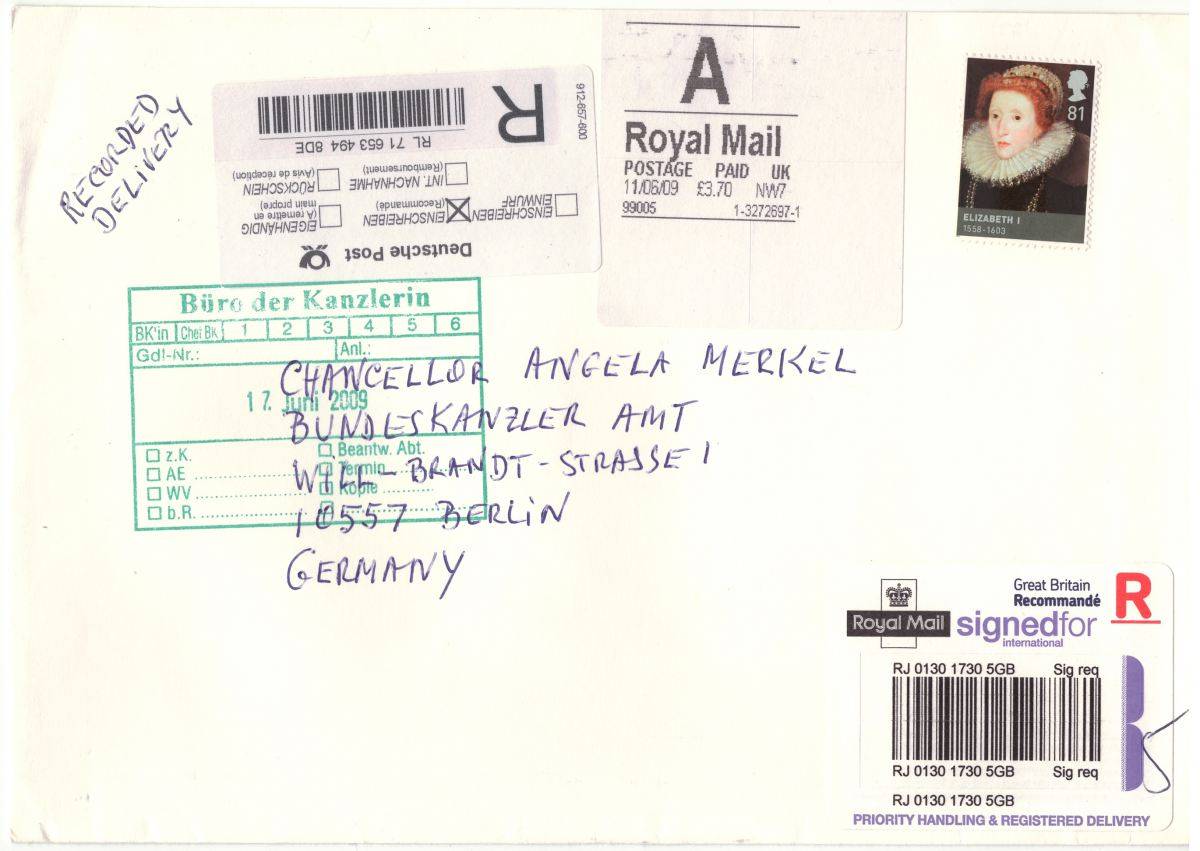 RECORDED
DELIVERY
912-657-600
R
RL 71 653 494 8DE
RÜCKSCHEIN
(Avis de réception)
INT. NACHNAHME
(Remboursement)
EIGENHÄNDIG
(A remettre en
main propre)
EINSCHREIBEN
(Recommandé)
EINSCHREIBEN
EINWURF
Deutsche Post
A
Royal Mail
POSTAGE PAID UK
11/06/09 £3.70 NW7
99005 1-3272697-1
81
ELIZABETH I
1558-1603
Büro der Kanzlerin
BK'in Chef BK 1 2 3 4 5 6
Gdl-Nr.: Anl.:
17. Juni 2009
z.K. Beantw. Abt.
AE Termin
WV Kopie
b.R.
CHANCELLOR ANGELA MERKEL
BUNDESKANZLER AMT
WILL-BRANDT-STRASSE 1
10557 BERLIN
GERMANY
Great Britain
Recommandé
R
Royal Mail signedfor
international
RJ 0130 1730 5GB Sig req
RJ 0130 1730 5GB Sig req
RJ 0130 1730 5GB
PRIORITY HANDLING & REGISTERED DELIVERY